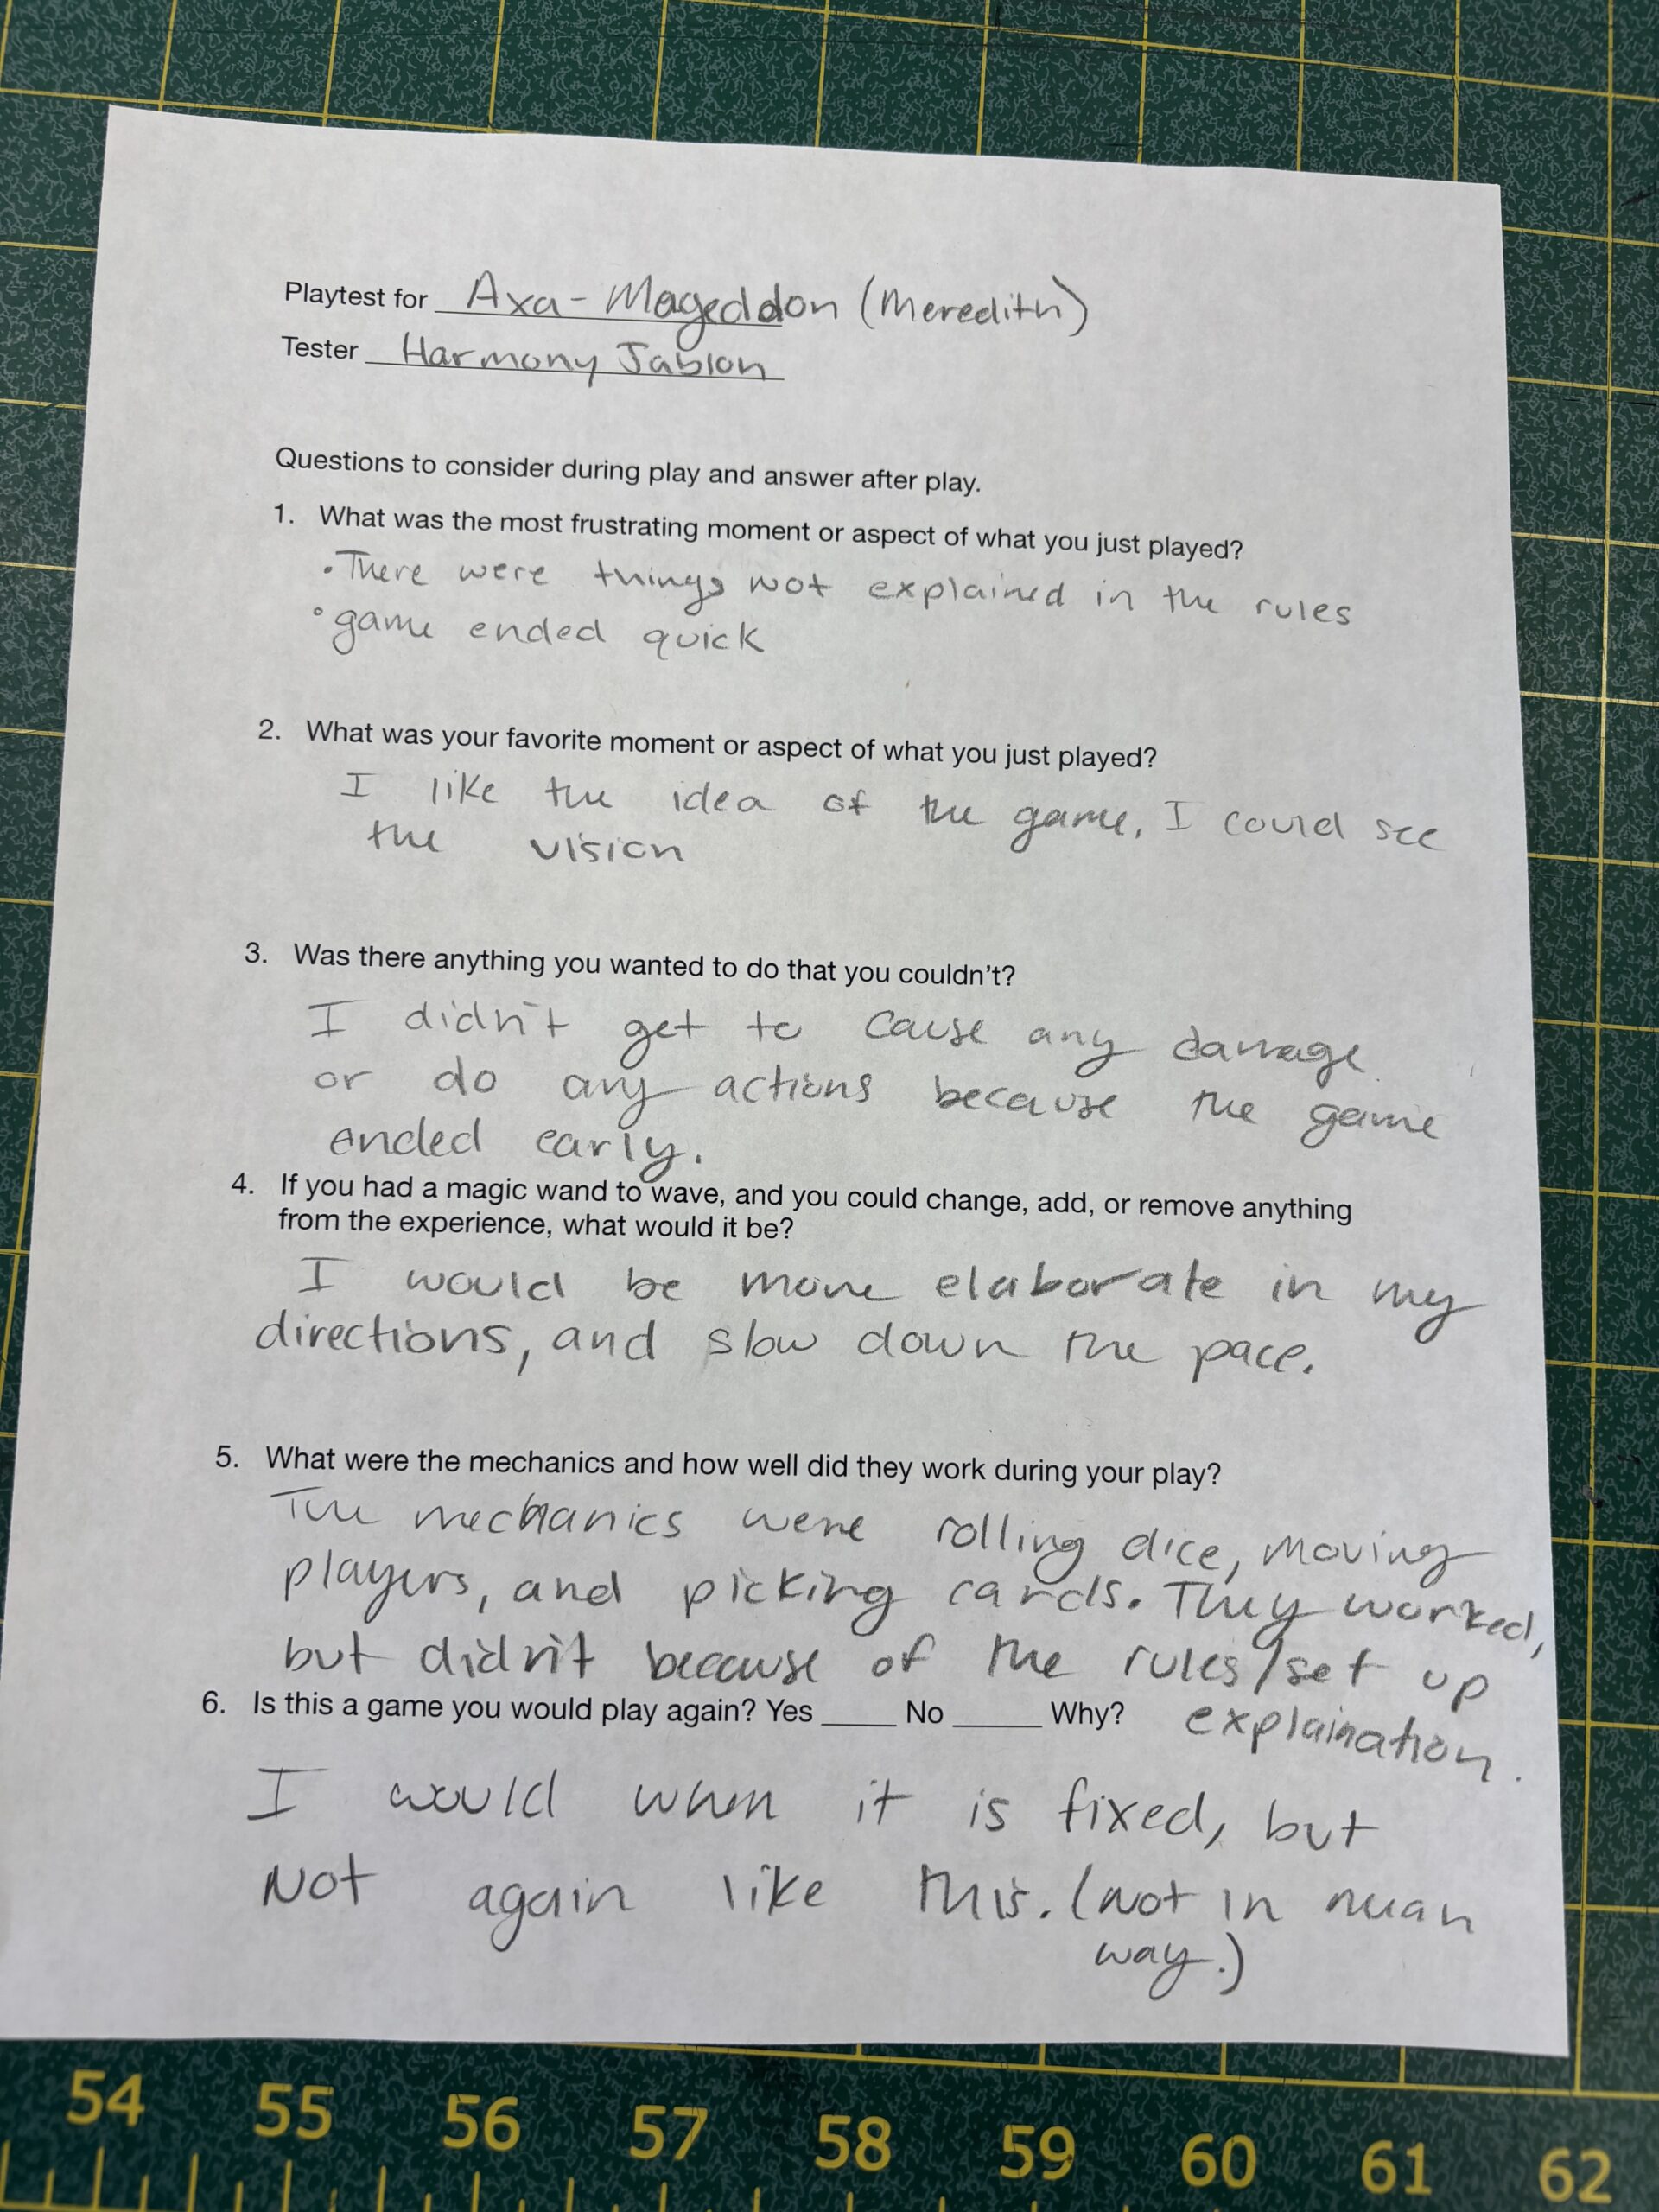 Playtest for Axa-Mageddon (Meredith)
Tester Harmony Jablon
Questions to consider during play and answer after play.
1. What was the most frustrating moment or aspect of what you just played?
• There were things not explained in the rules
• game ended quick
2. What was your favorite moment or aspect of what you just played?
I like the idea of the game, I could see
the vision
3. Was there anything you wanted to do that you couldn't?
I didn't get to cause any damage
or do any actions because the game
ended early.
4. If you had a magic wand to wave, and you could change, add, or remove anything
from the experience, what would it be?
I would be more elaborate in my
directions, and slow down the pace.
5. What were the mechanics and how well did they work during your play?
The mechanics were rolling dice, moving
players, and picking cards. They worked,
but didn't because of the rules/set up
explaination.
6. Is this a game you would play again? Yes ____ No ____ Why?
I would when it is fixed, but
Not again like this. (not in mean
way.)
54 55 56 57 58 59 60 61 62